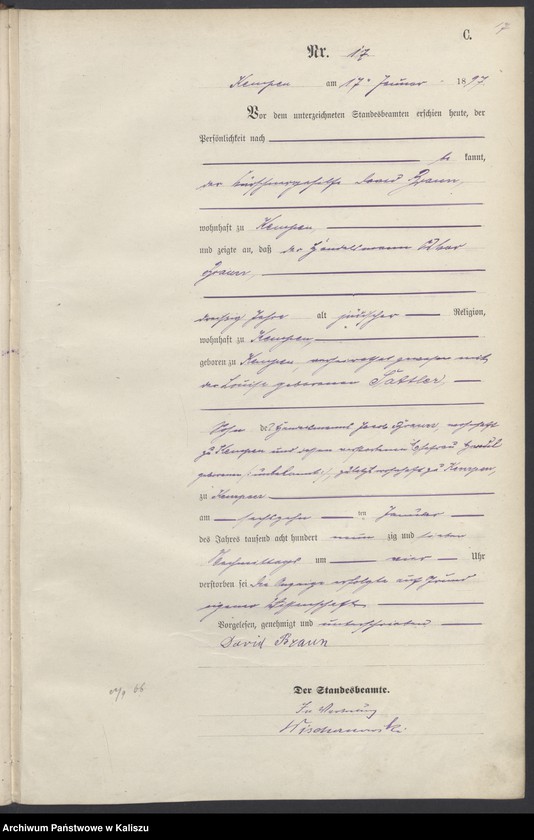 C.
17
Nr. 17
Kempen am 17. Januar 1897
Vor dem unterzeichneten Standesbeamten erschien heute, der
Persönlichkeit nach
be kannt,
der David Braun,
wohnhaft zu Kempen,
und zeigte an, daß der Handelsmann
Braun,
dreißig Jahre alt jüdischer Religion,
wohnhaft zu Kempen,
geboren zu Kempen, verheirathet gewesen mit
der Louise geborenen Sattler,
Sohn des Handelsmanns Jacob Braun, wohnhaft
zu Kempen und dessen verstorbenen Ehefrau
geborenen (unbekannt), zuletzt wohnhaft zu Kempen,
zu Kempen
am sechszehn ten Januar
des Jahres tausend acht hundert neun zig und sieben
Nachmittags um vier Uhr
verstorben sei Die Anzeige erfolgte auf Grund
eigener Wissenschaft
Vorgelesen, genehmigt und unterschrieben
David Braun
Der Standesbeamte.
In Vertretung
Archiwum Państwowe w Kaliszu